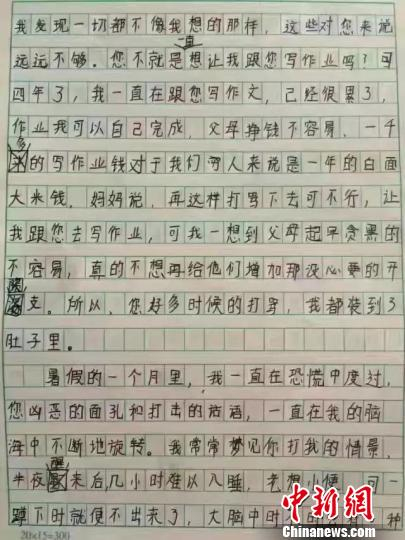 我发现一切都不像我想的那样，这些对您来说
远远不够。您不就是一直想让我跟您写作业吗？可
四年了，我一直在跟您写作文，已经很累了，
作业我可以自己完成，父母挣钱不容易，一千
多的写作业钱对于我们穷人来说是一年的白面
大米钱，妈妈说，再这样打骂下去可不行，让
我跟您去写作业，可我一想到父母起早贪黑的
不容易，真的不想再给他们增加那没必要的开
支。所以，您好多时候的打骂，我都装到了
肚子里。
暑假的一个月里，我一直在恐慌中度过，
您凶恶的面孔和打击的话语，一直在我的脑
海中不断地旋转。我常常梦见你打我的情景，
半夜醒来后几小时难以入睡，老想小便，可一
蹲下时就便不出来了，大脑中时不时
种
20×15=300
中新网
Chinanews.com